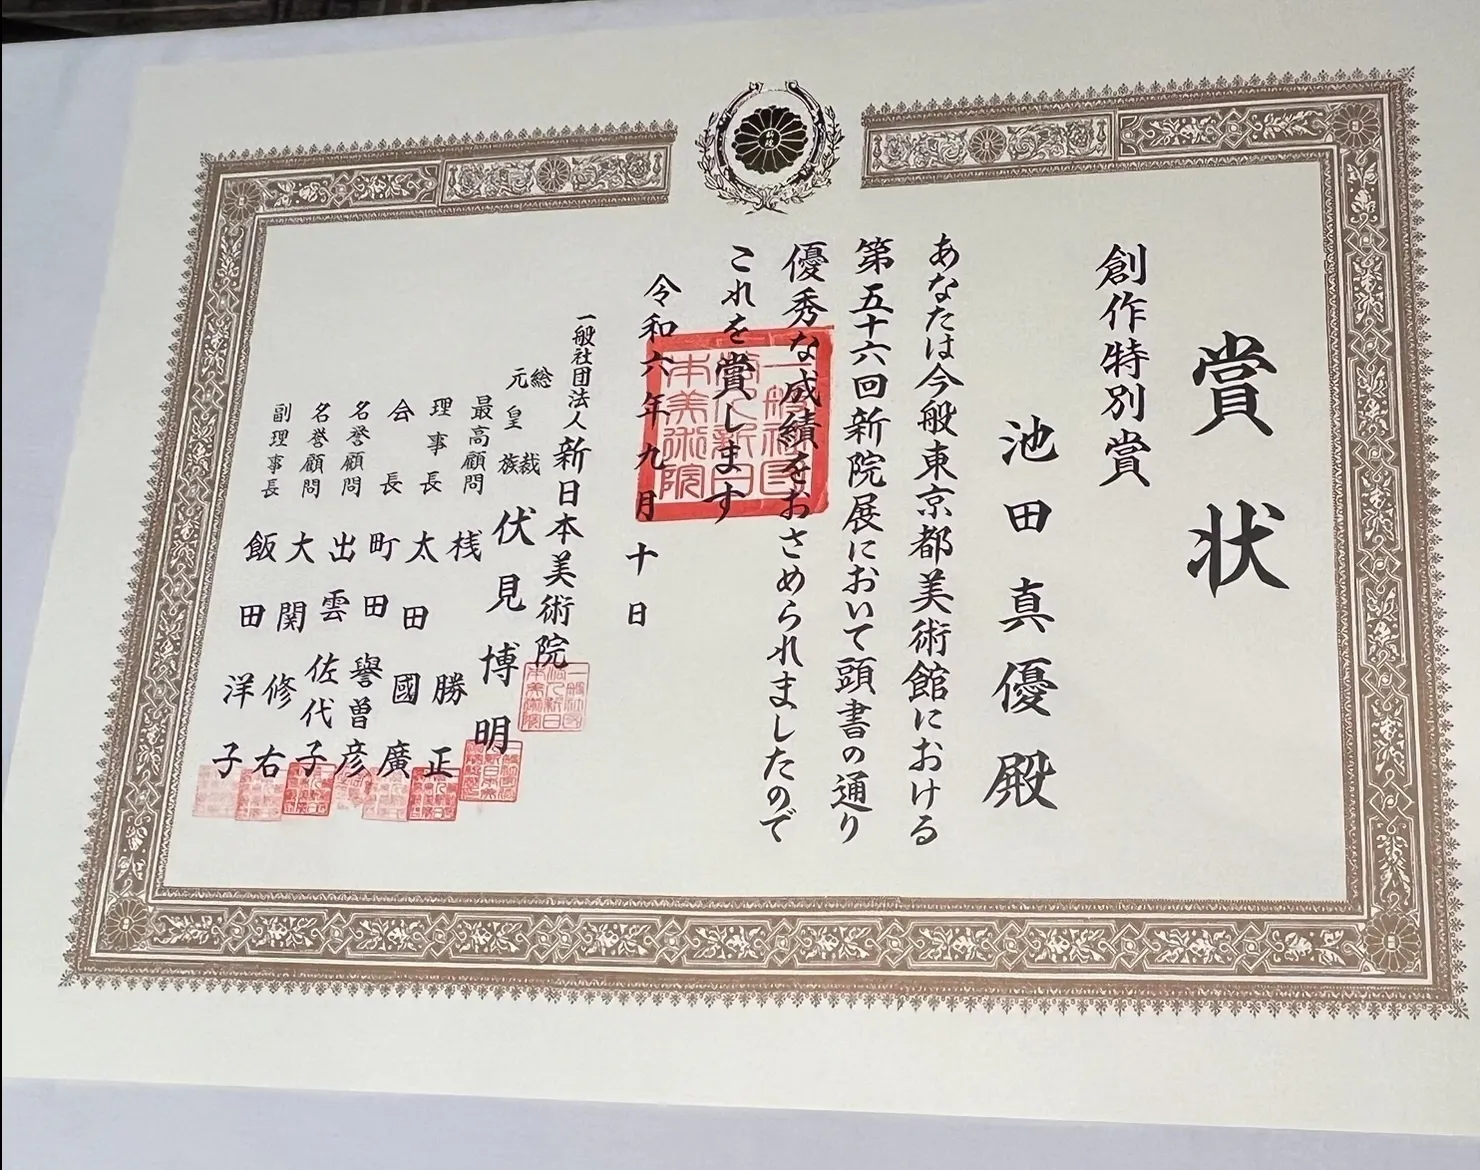 賞状
創作特別賞
池田真優殿
あなたは今般東京都美術館における
第五十六回新院展において頭書の通り
優秀な成績をおさめられましたので
これを賞します
令和六年九月十日
一般社団法人新日本美術院
総裁
元皇族 伏見博明
最高顧問 桟勝正
理事長 太田國廣
会長 町田譽曽彦
名誉顧問 出雲佐代子
名誉顧問 大関修右
副理事長 飯田洋子